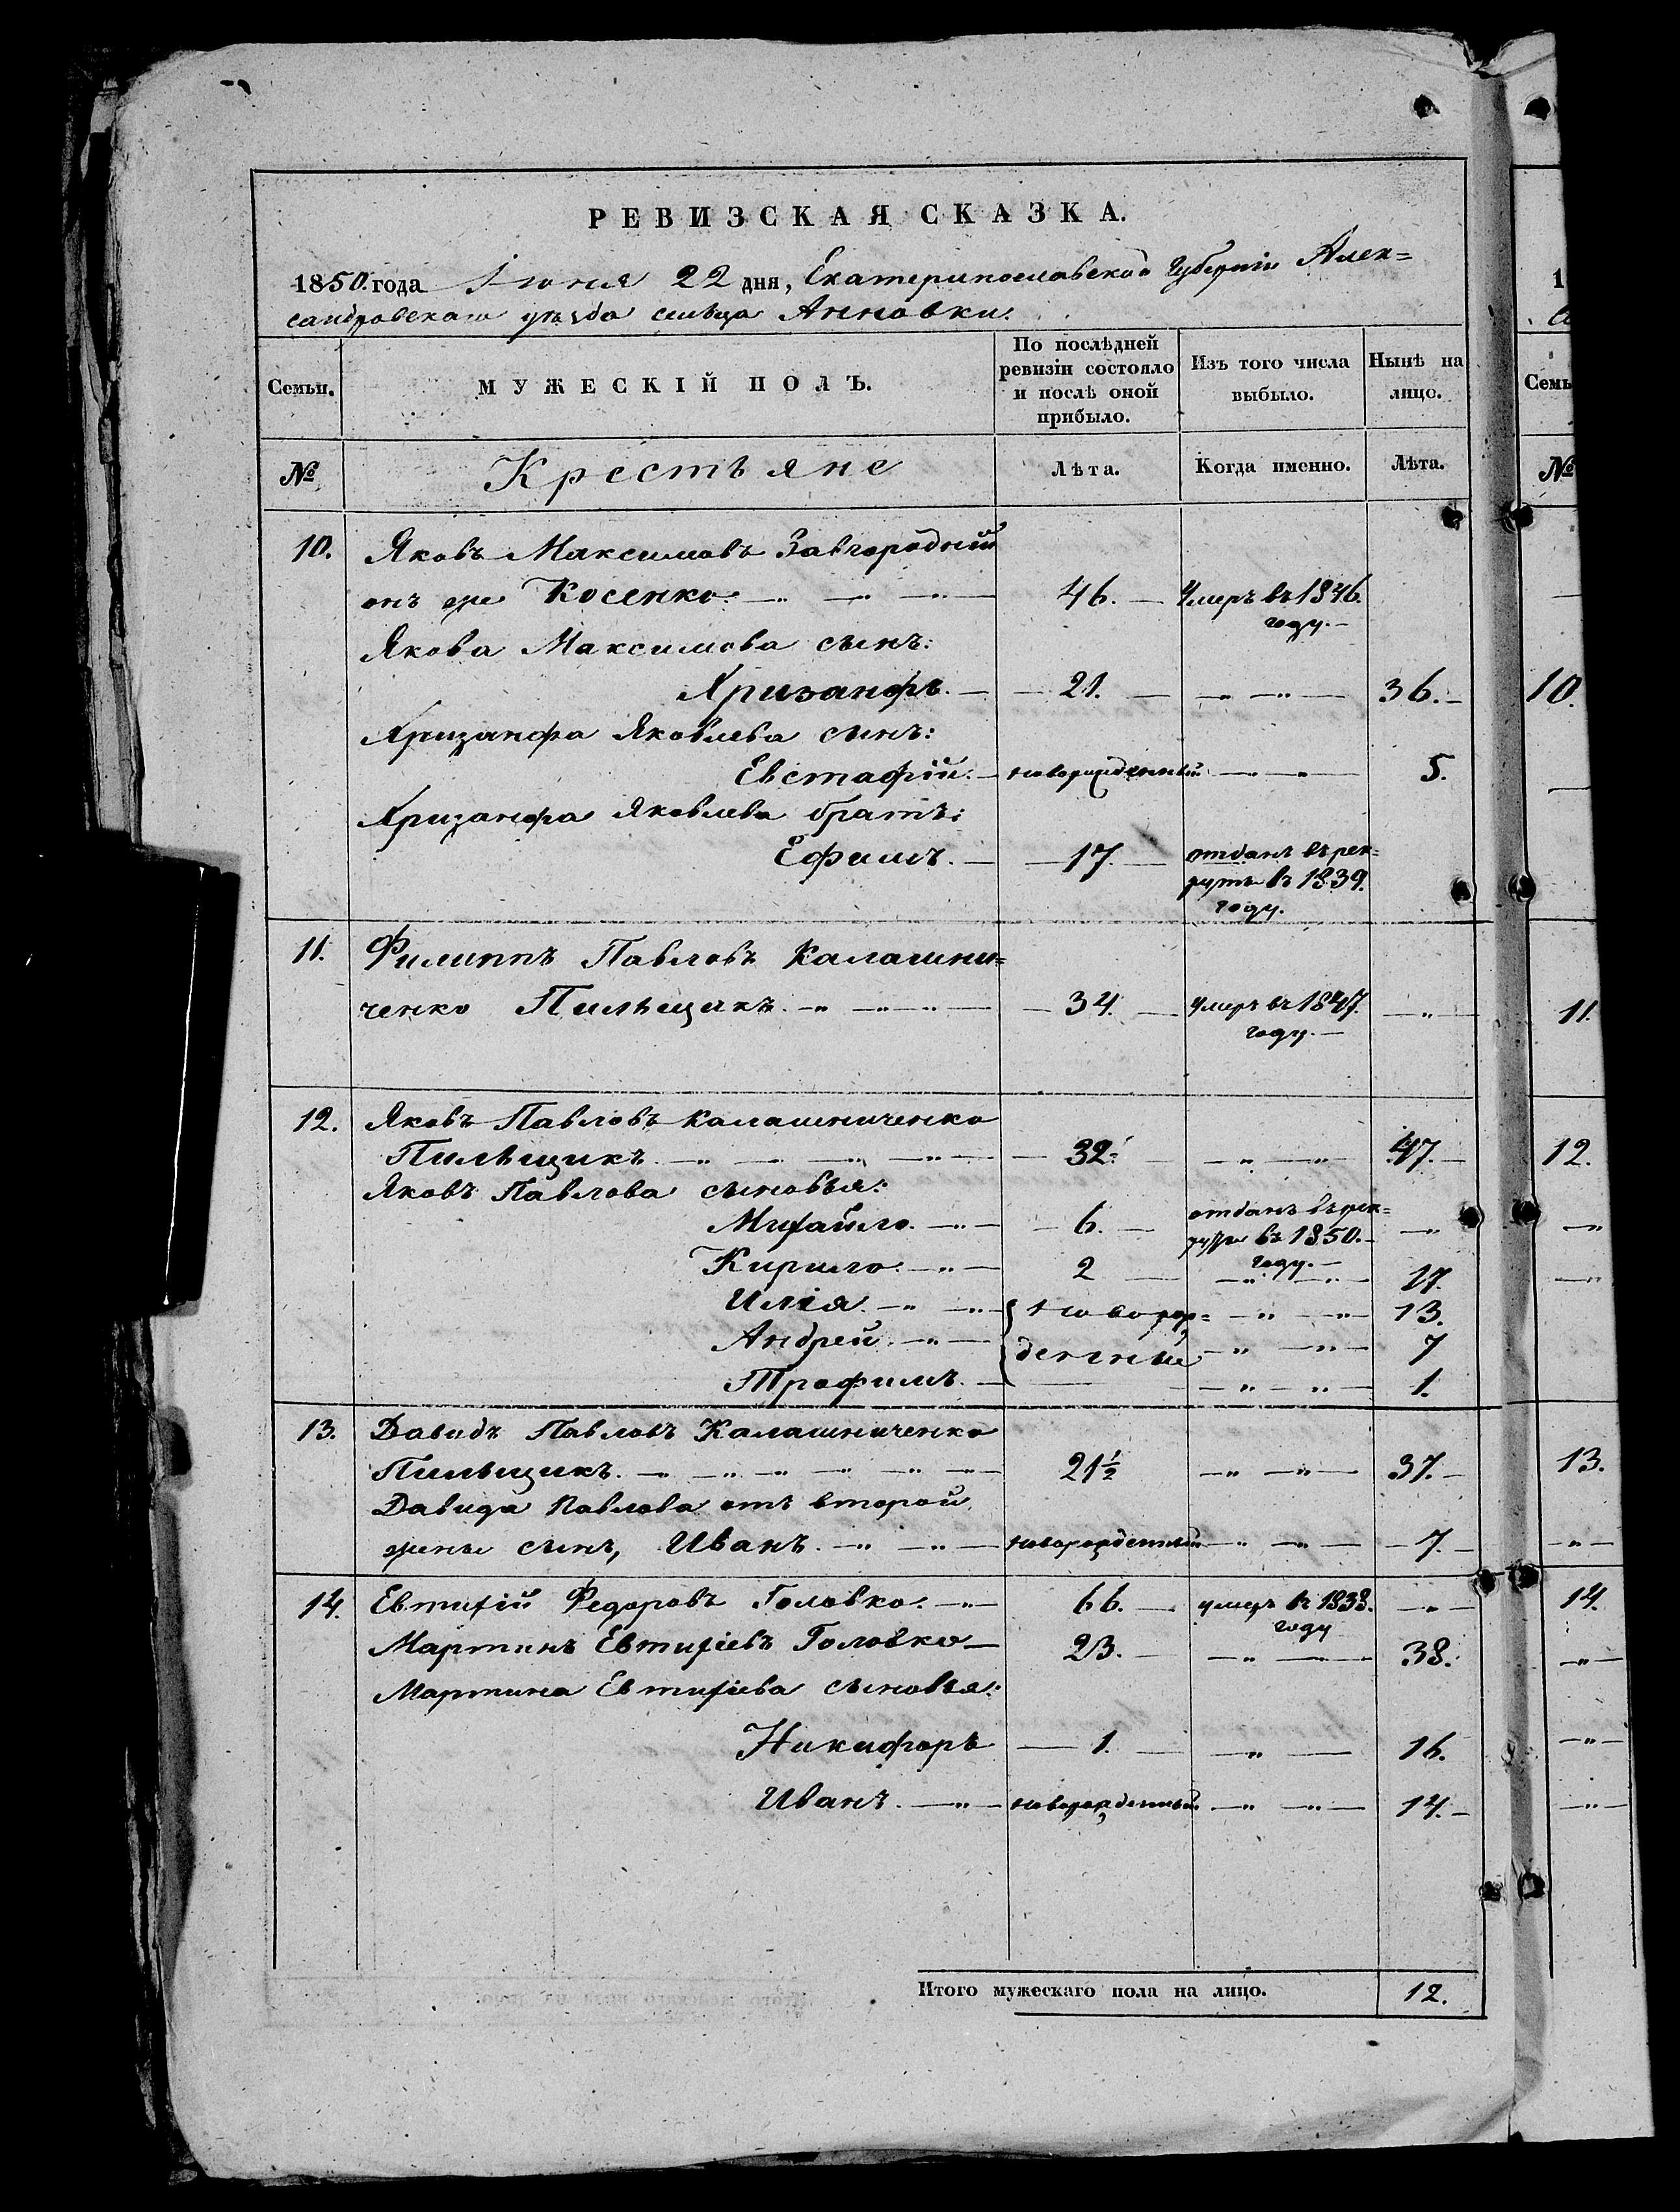 РЕВИЗСКАЯ СКАЗКА.
1850. года Іюня 22 дня, Екатеринославской Губерніи Алек=
сандровскаго уѣзда сельца Анновки.
Семьи. МУЖЕСКІЙ ПОЛЪ. По послѣдней ревизіи состояло и послѣ оной прибыло. Изъ того числа выбыло. Нынѣ на лицо.
№ Крестьяне Лѣта. Когда именно. Лѣта.
10. Яковъ Максимовъ Завгородній
онъ же Косенко. 46. Умеръ въ 1846.
году.
Якова Максимова сынъ:
Хризанфъ. 21. 36. 10.
Хризанфа Яковлева сынъ:
Евстафій. новорожденный 5.
Хризанфа Яковлева братъ:
Ефимъ. 17. отданъ въ рек=
руты в 1839.
году.
11. Филиппъ Павловъ Калашни=
ченко Пильщикъ. 34. умеръ въ 1847. 11.
году.
12. Яковъ Павловъ Калашниченко
Пильщикъ. 32. 47. 12.
Яковъ Павлова сыновья:
Михайло. 6. отданъ въ рек=
руты въ 1850.
году.
Кирило. 2 17.
Илія. новорож= 13.
Андрей. денные 7
Трофимъ. 1.
13. Давидъ Павловъ Калашниченко
Пильщикъ. 21½ 37. 13.
Давида Павлова отъ второй
жены сынъ, Иванъ. новорожденный 7.
14. Евтихій Федоровъ Головко. 66. умеръ в 1838. 14.
году
Мартинъ Евтихіевъ Головко 23. 38.
Мартина Евтихіева сыновья:
Никифоръ 1. 16.
Иванъ. новорожденный. 14.
Итого мужескаго пола на лицо. 12.
1
Семь
№